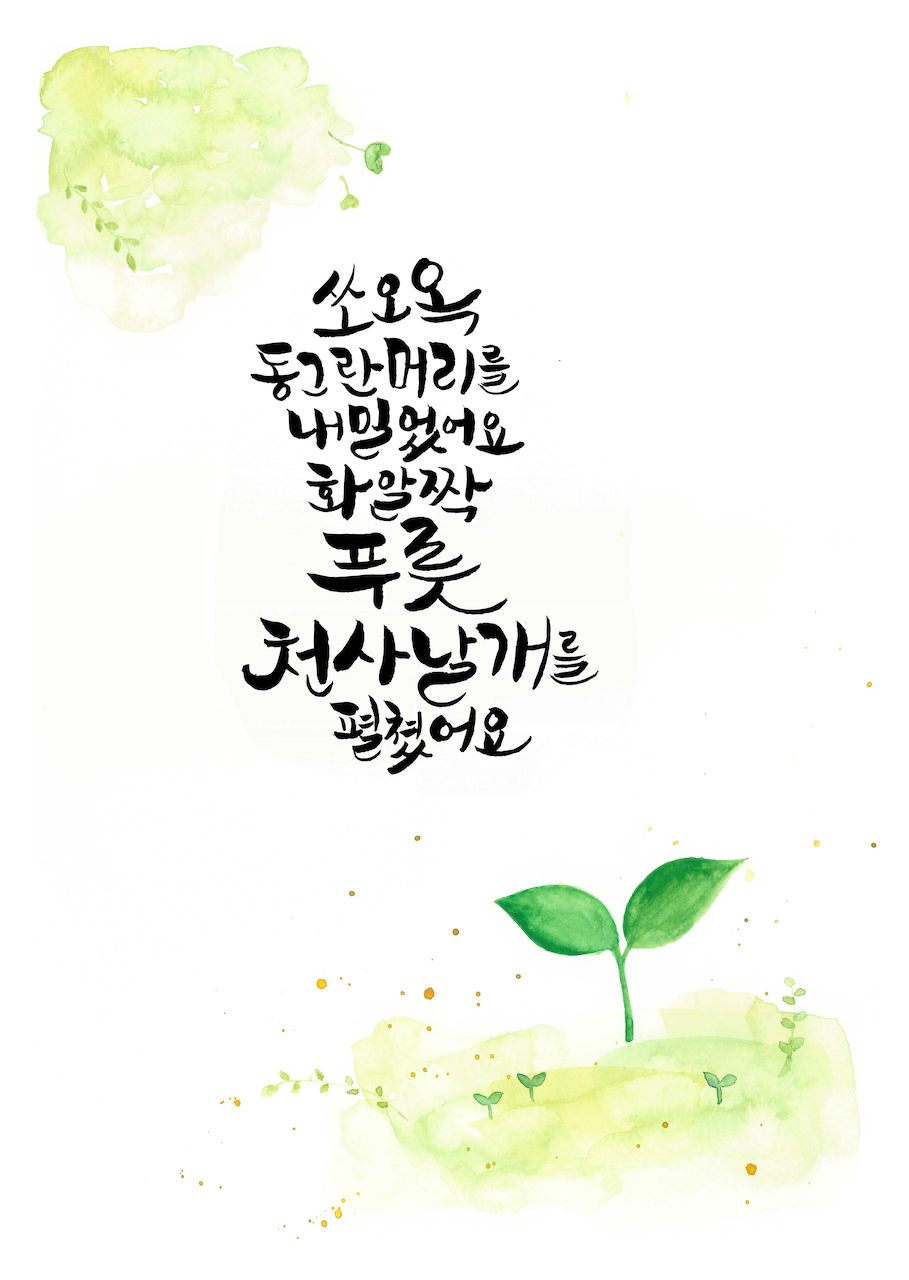 쏘오옥
동그란머리를
내밀었어요
화알짝
푸릇
천사날개를
펼쳤어요